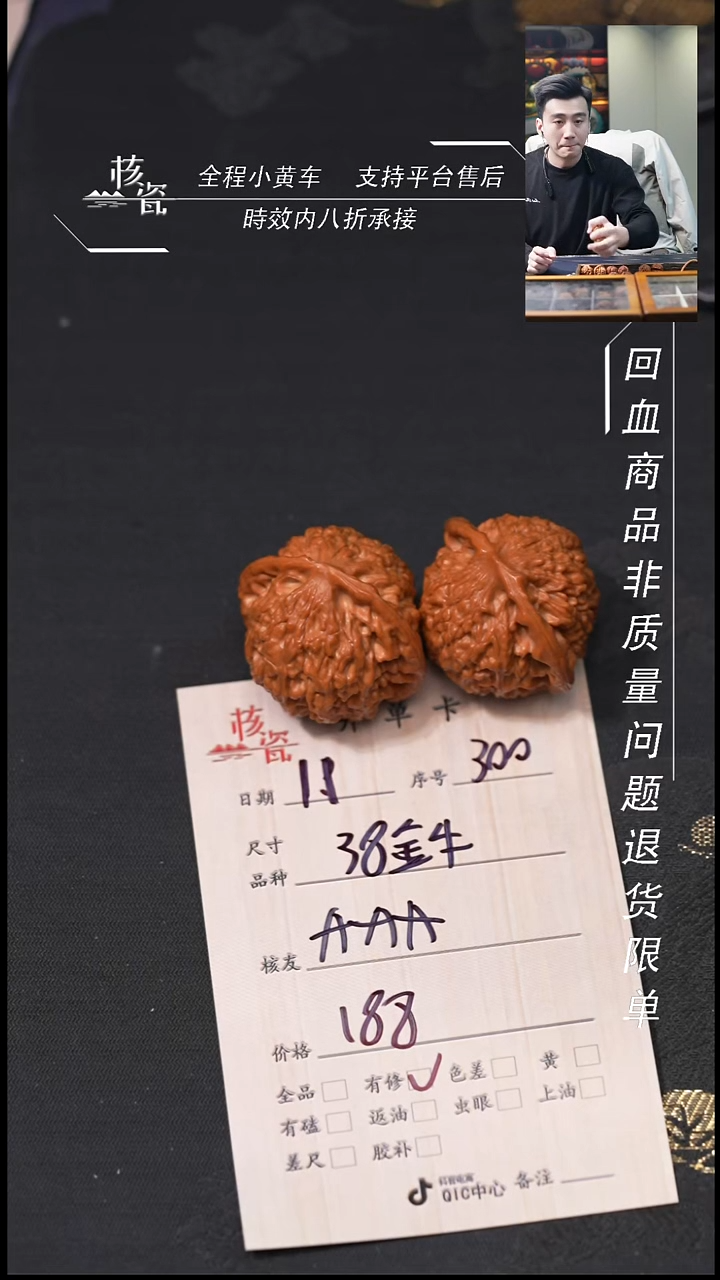 核瓷
全程小黄车 支持平台售后
時效内八折承接
回血商品非质量问题退货限单
核瓷
单卡
日期 11 序号 300
尺寸
品种 38金牛
核友 A-AA
价格 188
全品 有修 色差 黄
有磕 返油 虫眼 上油
差尺 胶补
抖音电商
QIC中心 备注